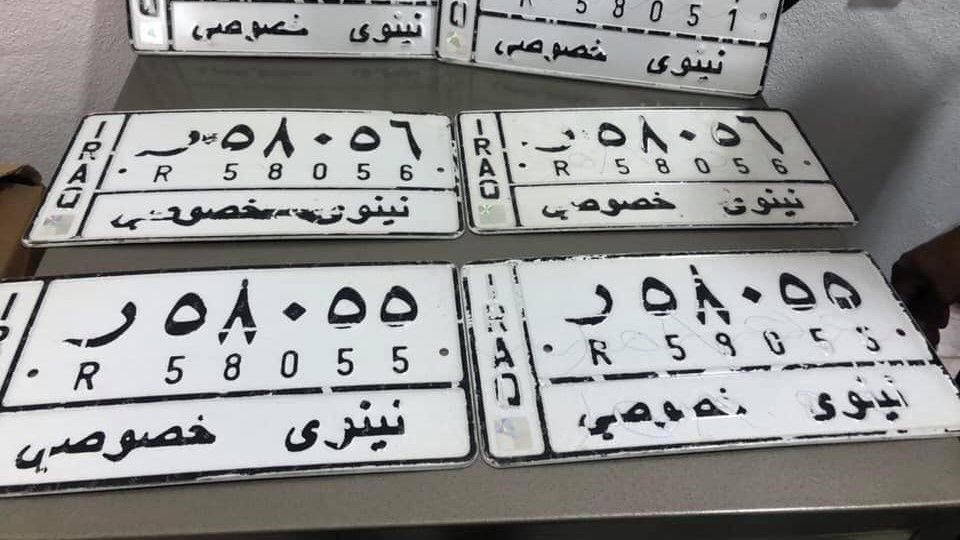 نينوى خصوصي
R 58051
نينوى خصوصي
IRAQ
ر ٥٨٠٥٦
R 58056
نينوى خصوصي
IRAQ
ر ٥٨٠٥٦
R 58056
نينوى خصوصي
ر ٥٨٠٥٥
R 58055
نينوى خصوصي
IRAQ
ر ٥٨٠٥٥
R 58055
نينوى خصوصي